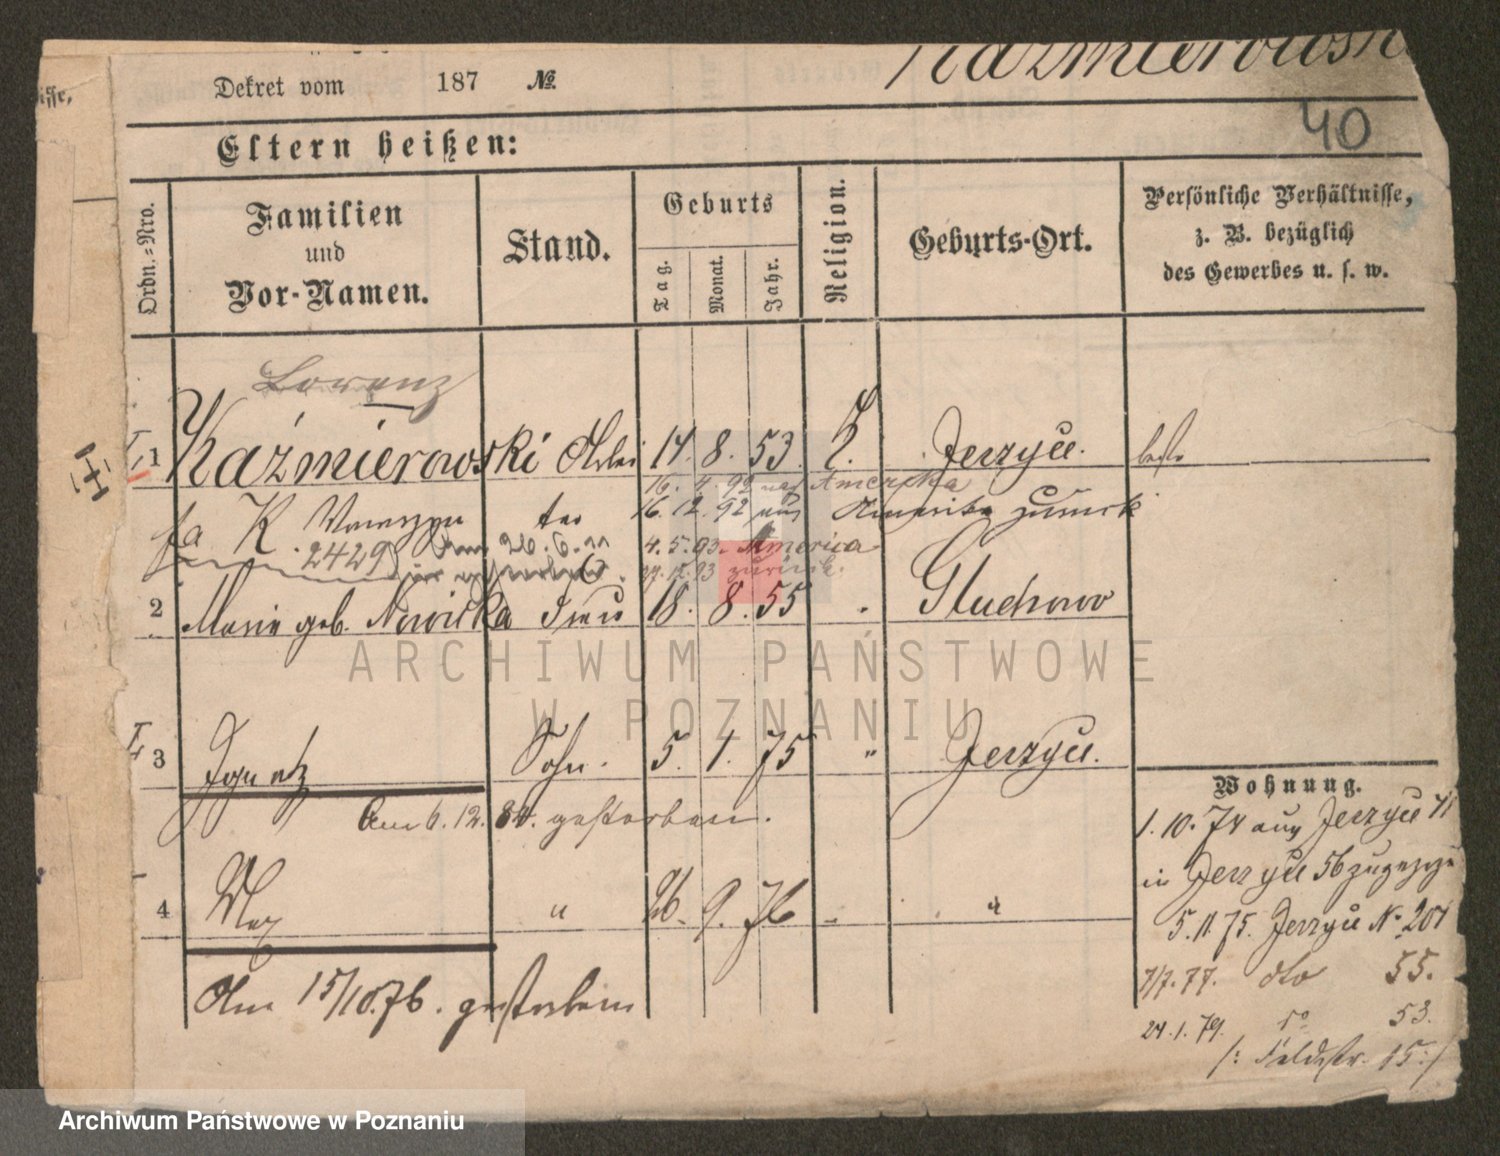 Kaźmierowsk
Dekret vom 187 №
40
Eltern heißen:
Ordn.-Nro.
Familien
und
Vor-Namen.
Stand.
Geburts
Tag.
Monat.
Jahr.
Religion.
Geburts-Ort.
Persönliche Verhältnisse,
z. B. bezüglich
des Gewerbes u. s. w.
Lorenz
1 Kaźmierowski 14. 8. 53 K. Jerzyce.
16. 4. 92 nach Amerika
16. 12. 92 aus Amerika zurück
K 2429 26. 6. 11
4. 5. 93. America
93 zurück.
2 Marie geb. Nowicka Frau 18. 8. 55 Gluchowo
3 Ignatz Sohn. 5. 1. 75 " Jerzyce.
Am 6. 12. 80. gestorben.
4 Max " 26. 9. 76 "
Am 15/10.76. gestorben
Wohnung.
1. 10. 74 aus Jerzyce 71
in Jerzyce 56 zugezogen
5. 11. 75. Jerzyce No 201
7/7. 77. dto 55.
24. 1. 79. do 53.
/: Feldstr. 15 :/
ARCHIWUM PAŃSTWOWE
W POZNANIU
Archiwum Państwowe w Poznaniu